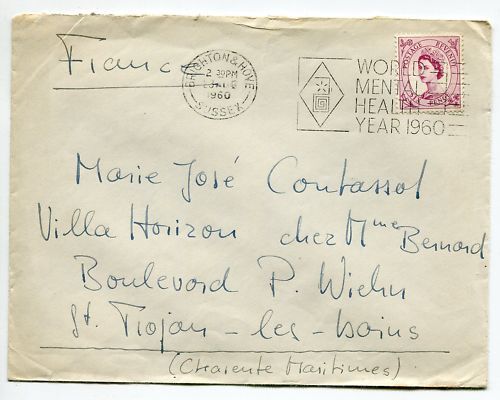 France
BRIGHTON & HOVE
2 30 PM
1960
SUSSEX
WORLD
MENTAL
HEALTH
YEAR 1960
POSTAGE REVENUE
Marie José Contassot
Villa Horizon chez Mme Bernard
Boulevard P. Wiehn
St. Trojan-les-bains
(Charente Maritimes)